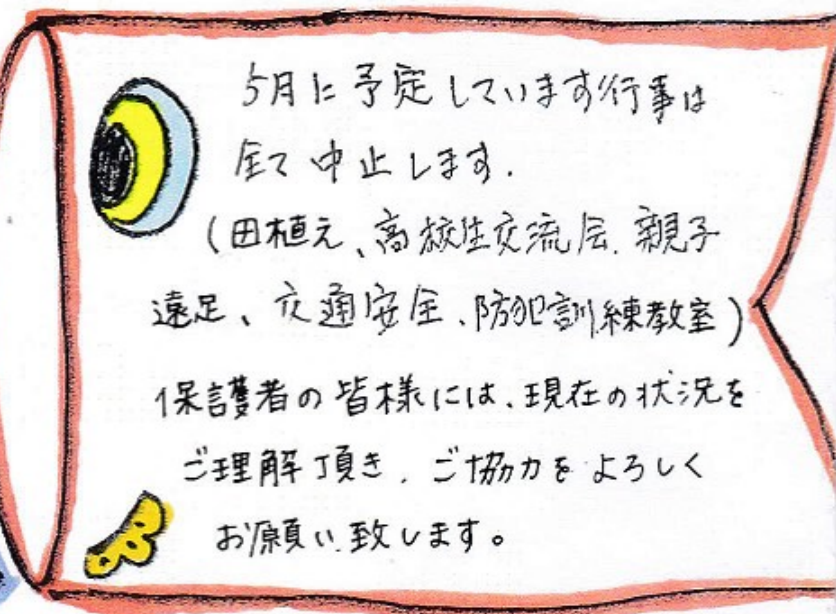 5月に予定しています行事は
全て中止します.
(田植え、高校生交流会.親子
遠足、交通安全、防犯訓練教室)
保護者の皆様には、現在の状況を
ご理解頂き、ご協力をよろしく
お願い致します。